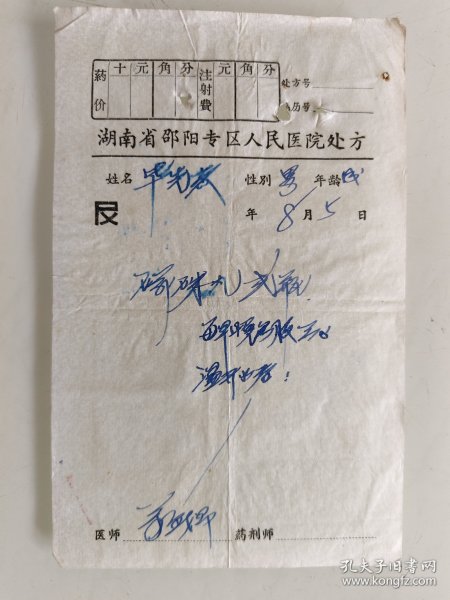 药价 十 元 角 分 注射費 元 角 分
处方号
历号
湖南省邵阳专区人民医院处方
姓名 性别 男 年龄 成
年 8 月 5 日
磁硃丸 弍瓶
每早晚各服三
温开水吞!
医师 药剂师
孔夫子旧书网
www.kongfz.com